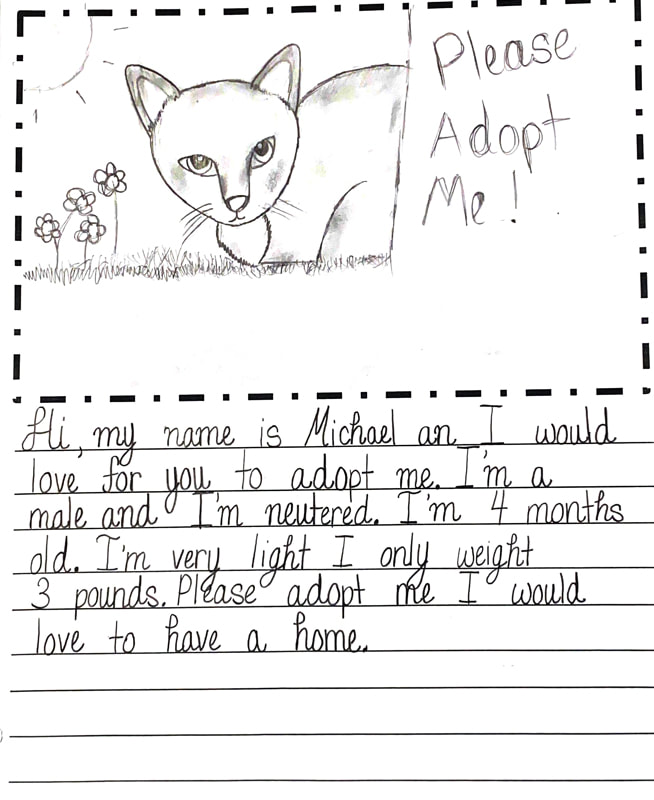 Please
Adopt
Me!
Hi, my name is Michael an I would
love for you to adopt me. I'm a
male and I'm neutered. I'm 4 months
old. I'm very light I only weight
3 pounds. Please adopt me I would
love to have a home.